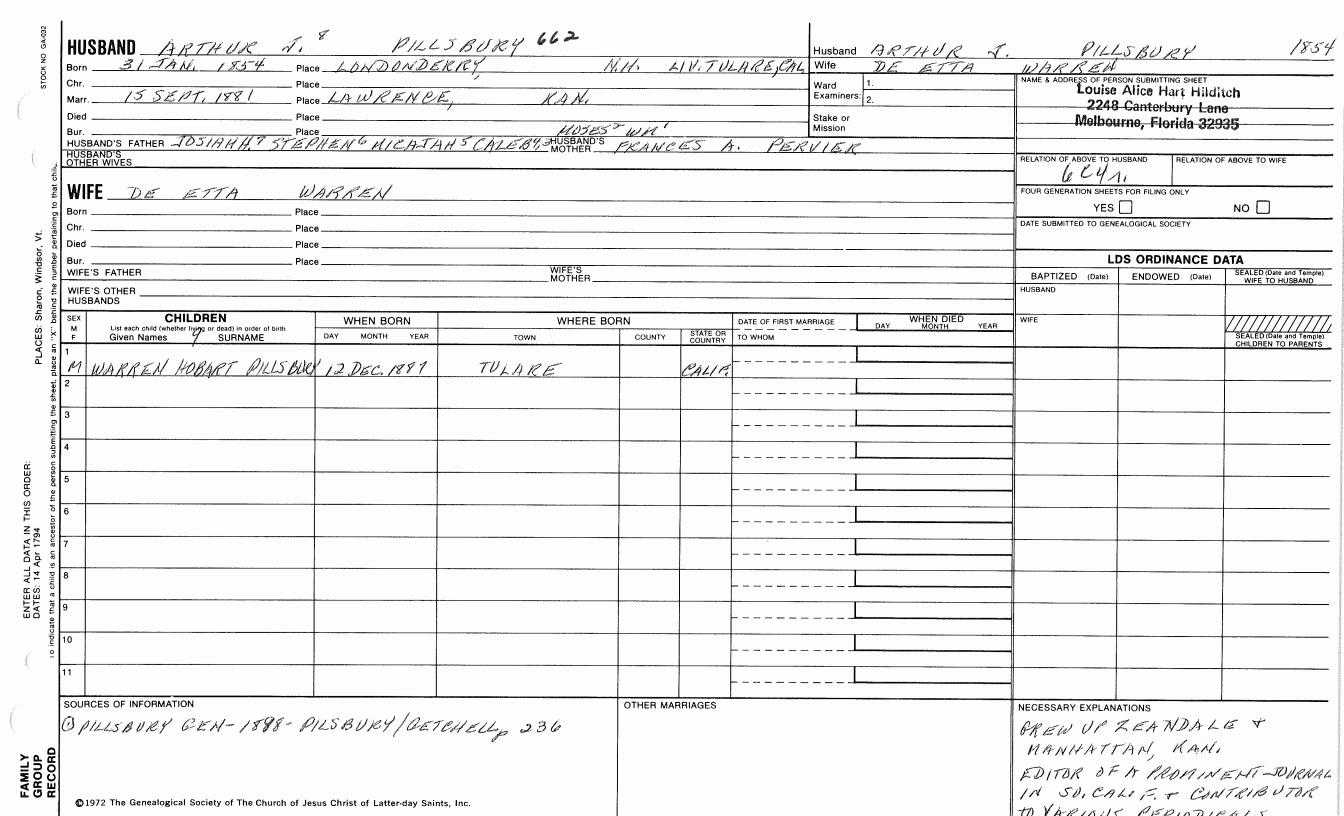 STOCK NO GA-032
HUSBAND ARTHUR J. 8 PILLSBURY 662
Born 31 JAN. 1854 Place LONDONDERRY, N.H. LIV. TULARE, CAL
Chr. Place
Marr. 15 SEPT. 1881 Place LAWRENCE, KAN.
Died Place
Bur. Place
MOSES2 WM1
HUSBAND'S FATHER JOSIAH H.7 STEPHEN6 MICAJAH5 CALEB4,3 HUSBAND'S MOTHER FRANCES A. PERVIER
HUSBAND'S OTHER WIVES
Husband ARTHUR J. PILLSBURY 1854
Wife DE ETTA WARREN
Ward Examiners: 1. 2.
Stake or Mission
NAME & ADDRESS OF PERSON SUBMITTING SHEET
Louise Alice Hart Hilditch
2248 Canterbury Lane
Melbourne, Florida 32935
RELATION OF ABOVE TO HUSBAND RELATION OF ABOVE TO WIFE
6C4R
FOUR GENERATION SHEETS FOR FILING ONLY
YES NO
DATE SUBMITTED TO GENEALOGICAL SOCIETY
WIFE DE ETTA WARREN
Born Place
Chr. Place
Died Place
Bur. Place
WIFE'S FATHER WIFE'S MOTHER
WIFE'S OTHER HUSBANDS
LDS ORDINANCE DATA
BAPTIZED (Date) ENDOWED (Date) SEALED (Date and Temple) WIFE TO HUSBAND
HUSBAND
WIFE
SEALED (Date and Temple) CHILDREN TO PARENTS
SEX M F
CHILDREN
List each child (whether living or dead) in order of birth
Given Names 9 SURNAME
WHEN BORN
DAY MONTH YEAR
WHERE BORN
TOWN COUNTY STATE OR COUNTRY
DATE OF FIRST MARRIAGE
TO WHOM
WHEN DIED
DAY MONTH YEAR
1
M WARREN HOBART PILLSBURY 12 DEC. 1887 TULARE CALIF.
2
3
4
5
6
7
8
9
10
11
SOURCES OF INFORMATION
① PILLSBURY GEN- 1898- PILSBURY/GETCHELL, p 236
©1972 The Genealogical Society of The Church of Jesus Christ of Latter-day Saints, Inc.
OTHER MARRIAGES
NECESSARY EXPLANATIONS
GREW UP ZEANDALE +
MANHATTAN, KAN.
EDITOR OF A PROMINENT JOURNAL
IN SO. CALIF. + CONTRIBUTOR
TO VARIOUS PERIODICALS
FAMILY GROUP RECORD
ENTER ALL DATA IN THIS ORDER:
DATES: 14 Apr 1794
PLACES: Sharon, Windsor, Vt.
To indicate that a child is an ancestor of the person submitting the sheet, place an "X" behind the number pertaining to that child.